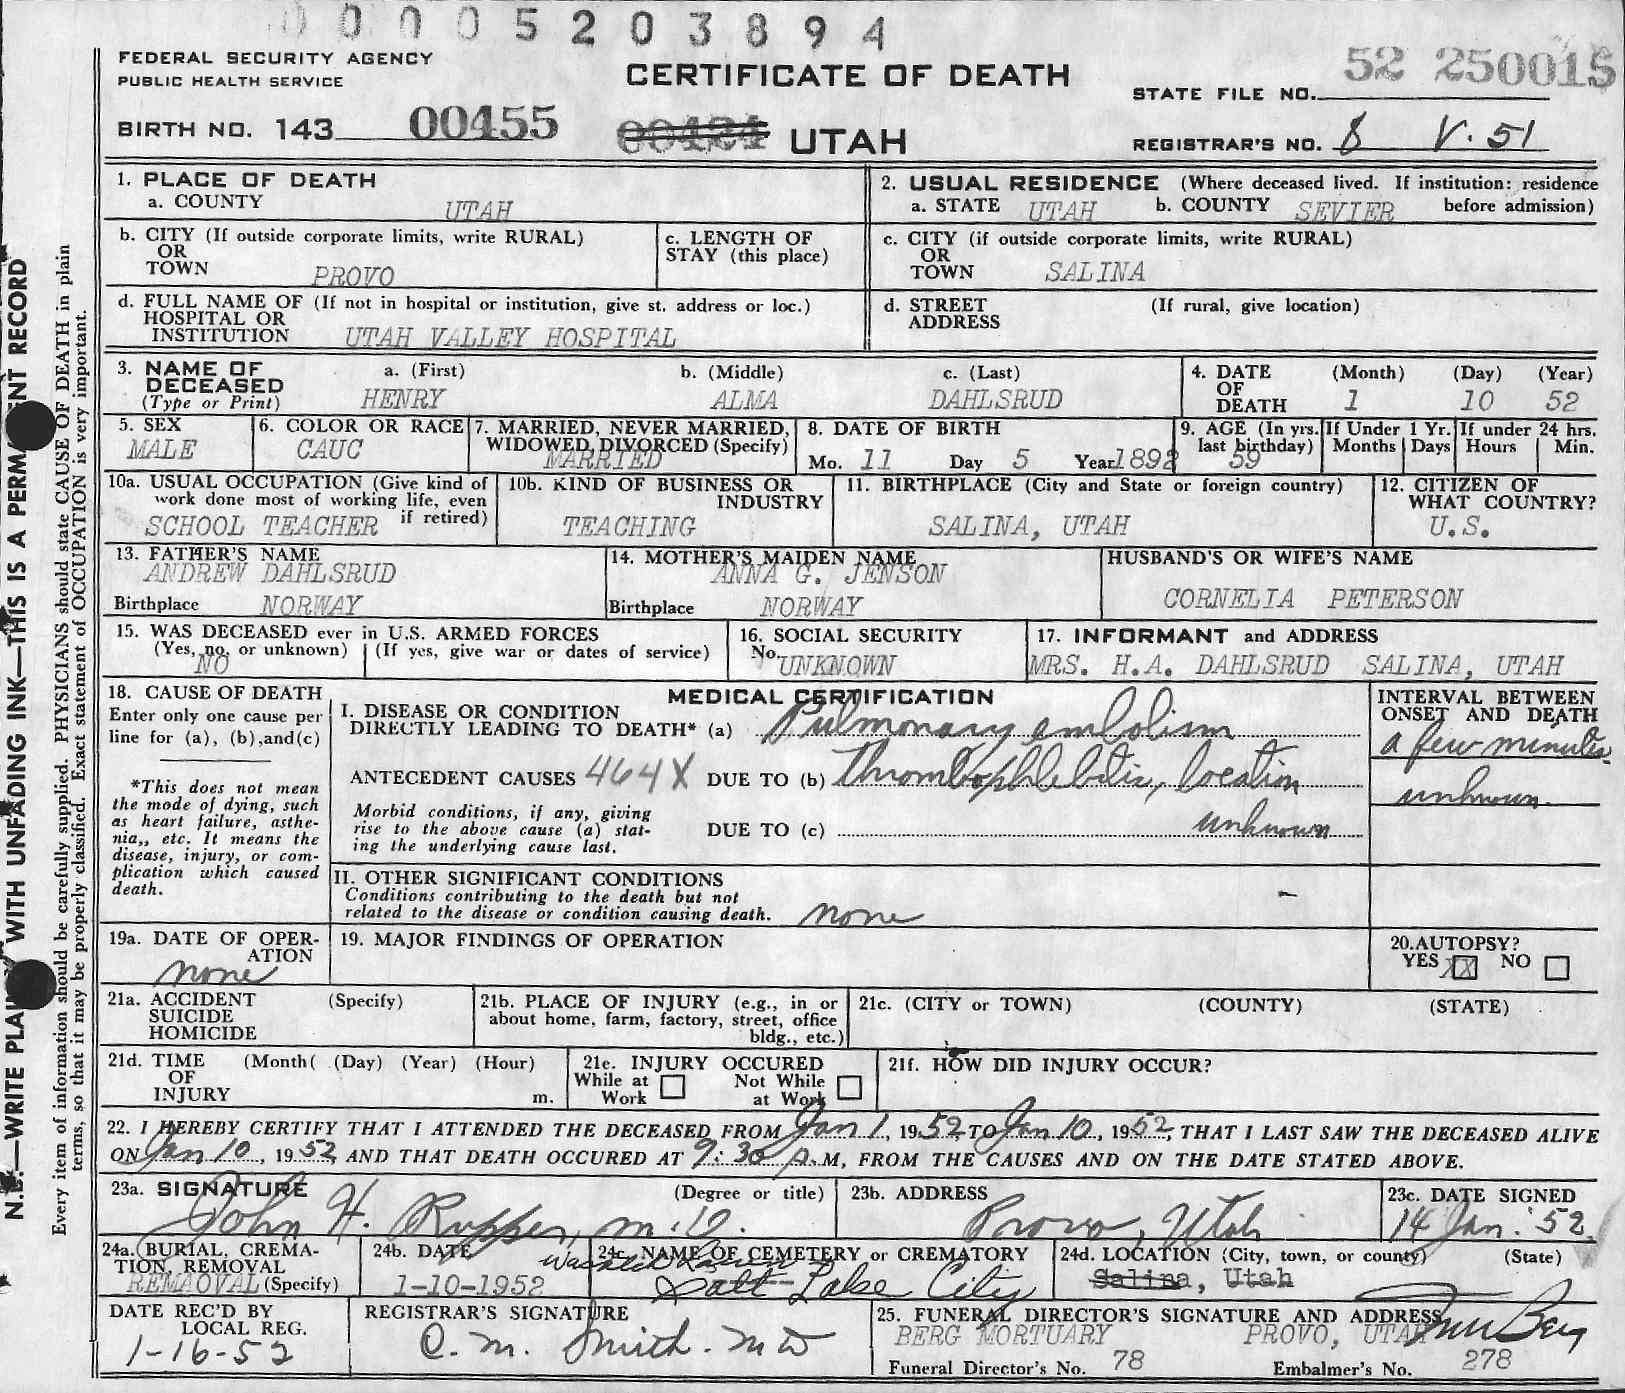 0 0 0 0 5 2 0 3 8 9 4
FEDERAL SECURITY AGENCY
PUBLIC HEALTH SERVICE
CERTIFICATE OF DEATH
STATE FILE NO. 52 250015
BIRTH NO. 143 00455 00424 UTAH
REGISTRAR'S NO. 8 V. 51
1. PLACE OF DEATH
a. COUNTY UTAH
2. USUAL RESIDENCE (Where deceased lived. If institution: residence before admission)
a. STATE UTAH b. COUNTY SEVIER
b. CITY (If outside corporate limits, write RURAL)
OR
TOWN PROVO
c. LENGTH OF
STAY (this place)
c. CITY (if outside corporate limits, write RURAL)
OR
TOWN SALINA
d. FULL NAME OF (If not in hospital or institution, give st. address or loc.)
HOSPITAL OR
INSTITUTION UTAH VALLEY HOSPITAL
d. STREET (If rural, give location)
ADDRESS
3. NAME OF
DECEASED
(Type or Print)
a. (First) b. (Middle) c. (Last)
HENRY ALMA DAHLSRUD
4. DATE
OF
DEATH
(Month) (Day) (Year)
1 10 52
5. SEX
MALE
6. COLOR OR RACE
CAUC
7. MARRIED, NEVER MARRIED,
WIDOWED, DIVORCED (Specify)
MARRIED
8. DATE OF BIRTH
Mo. 11 Day 5 Year 1892
9. AGE (In yrs.
last birthday)
59
If Under 1 Yr.
Months Days
If under 24 hrs.
Hours Min.
10a. USUAL OCCUPATION (Give kind of
work done most of working life, even
if retired)
SCHOOL TEACHER
10b. KIND OF BUSINESS OR
INDUSTRY
TEACHING
11. BIRTHPLACE (City and State or foreign country)
SALINA, UTAH
12. CITIZEN OF
WHAT COUNTRY?
U.S.
13. FATHER'S NAME
ANDREW DAHLSRUD
Birthplace NORWAY
14. MOTHER'S MAIDEN NAME
ANNA G. JENSON
Birthplace NORWAY
HUSBAND'S OR WIFE'S NAME
CORNELIA PETERSON
15. WAS DECEASED ever in U.S. ARMED FORCES
(Yes, no, or unknown) (If yes, give war or dates of service)
NO
16. SOCIAL SECURITY
No. UNKNOWN
17. INFORMANT and ADDRESS
MRS. H.A. DAHLSRUD SALINA, UTAH
18. CAUSE OF DEATH
Enter only one cause per
line for (a), (b),and(c)
*This does not mean
the mode of dying, such
as heart failure, asthe-
nia,, etc. It means the
disease, injury, or com-
plication which caused
death.
MEDICAL CERTIFICATION
I. DISEASE OR CONDITION
DIRECTLY LEADING TO DEATH* (a) Pulmonary embolism
ANTECEDENT CAUSES 464X DUE TO (b) Thrombophlebitis, location
Morbid conditions, if any, giving
rise to the above cause (a) stat-
ing the underlying cause last.
DUE TO (c) unknown
INTERVAL BETWEEN
ONSET AND DEATH
a few minutes
unknown
II. OTHER SIGNIFICANT CONDITIONS
Conditions contributing to the death but not
related to the disease or condition causing death. none
19a. DATE OF OPER-
ATION
none
19. MAJOR FINDINGS OF OPERATION
20.AUTOPSY?
YES XX NO
21a. ACCIDENT (Specify)
SUICIDE
HOMICIDE
21b. PLACE OF INJURY (e.g., in or
about home, farm, factory, street, office
bldg., etc.)
21c. (CITY or TOWN) (COUNTY) (STATE)
21d. TIME (Month( (Day) (Year) (Hour)
OF
INJURY m.
21e. INJURY OCCURED
While at Not While
Work at Work
21f. HOW DID INJURY OCCUR?
22. I HEREBY CERTIFY THAT I ATTENDED THE DECEASED FROM Jan 1, 1952 TO Jan 10, 1952, THAT I LAST SAW THE DECEASED ALIVE
ON Jan 10, 1952, AND THAT DEATH OCCURED AT 9:30 P.M, FROM THE CAUSES AND ON THE DATE STATED ABOVE.
23a. SIGNATURE (Degree or title)
John H. Rupper, M.D.
23b. ADDRESS
Provo, Utah
23c. DATE SIGNED
14 Jan. 52
24a. BURIAL, CREMA-
TION, REMOVAL
REMAOVAL (Specify)
24b. DATE
1-10-1952
24c. NAME OF CEMETERY or CREMATORY
Wasatch Lawn
Salt Lake City
24d. LOCATION (City, town, or county) (State)
Salina, Utah
DATE REC'D BY
LOCAL REG.
1-16-52
REGISTRAR'S SIGNATURE
C. M. Smith. MD
25. FUNERAL DIRECTOR'S SIGNATURE AND ADDRESS
BERG MORTUARY PROVO, UTAH
Funeral Director's No. 78 Embalmer's No. 278
N.B.—WRITE PLAI WITH UNFADING INK—THIS IS A PERMA ENT RECORD
Every item of information should be carefully supplied. PHYSICIANS should state CAUSE OF DEATH in plain
terms, so that it may be properly classified. Exact statement of OCCUPATION is very important.